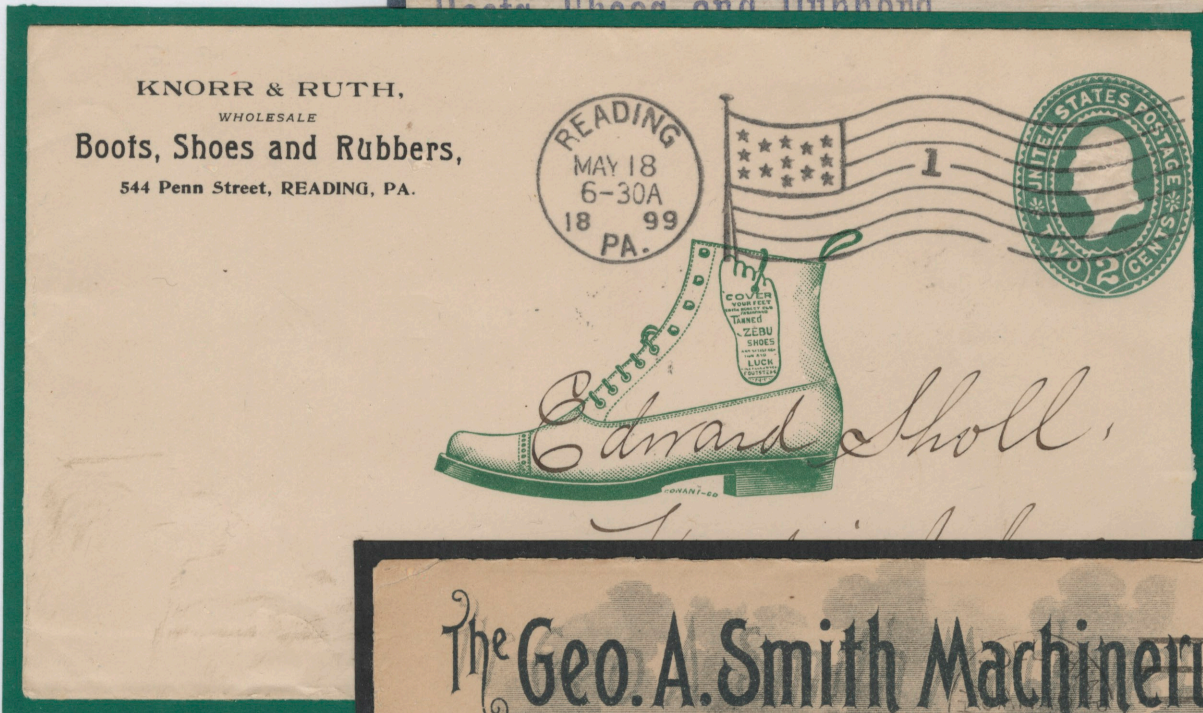 Boots, Shoes and Rubbers
KNORR & RUTH,
WHOLESALE
Boots, Shoes and Rubbers,
544 Penn Street, READING, PA.
READING
MAY 18
6-30A
18 99
PA.
1
UNITED STATES POSTAGE
TWO 2 CENTS
COVER
YOUR FEET
TANNED
ZEBU
SHOES
LUCK
Edward Sholl.
The Geo. A. Smith Machinery